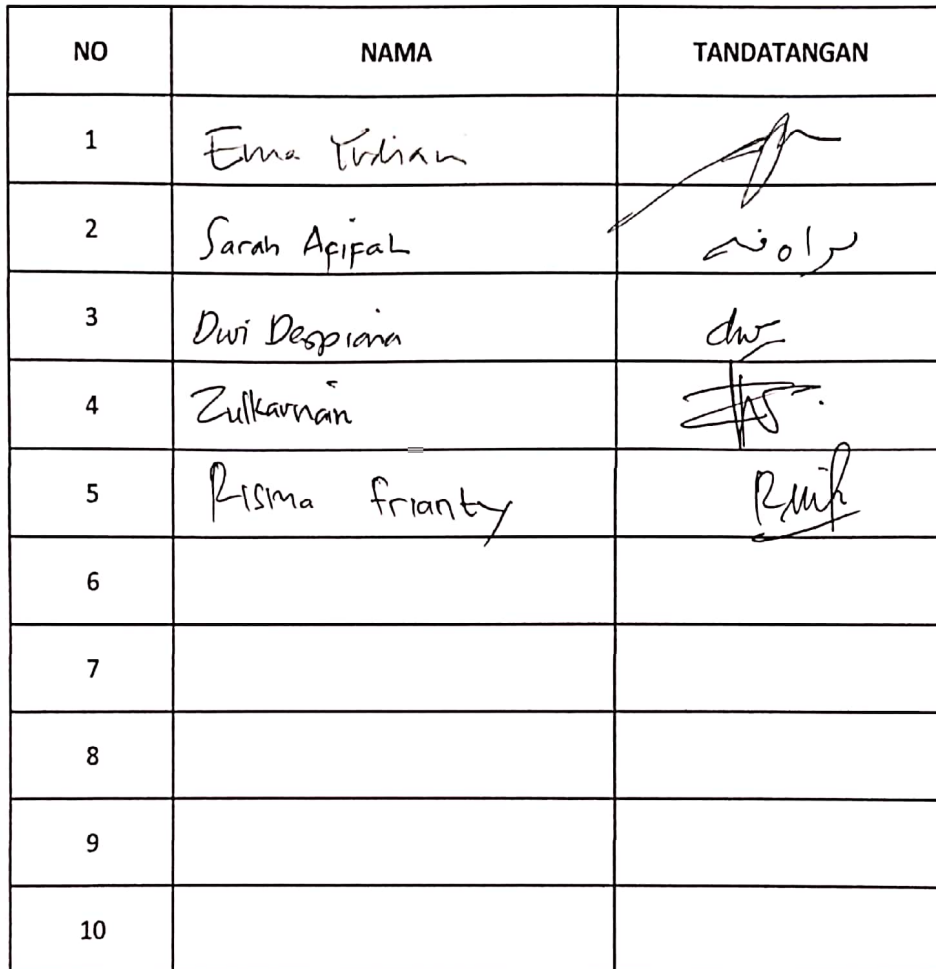 NO NAMA TANDATANGAN
1 Erna Yudian
2 Sarah Afifah
3 Dwi Despiana
4 Zulkarnain
5 Risma frianty
6
7
8
9
10